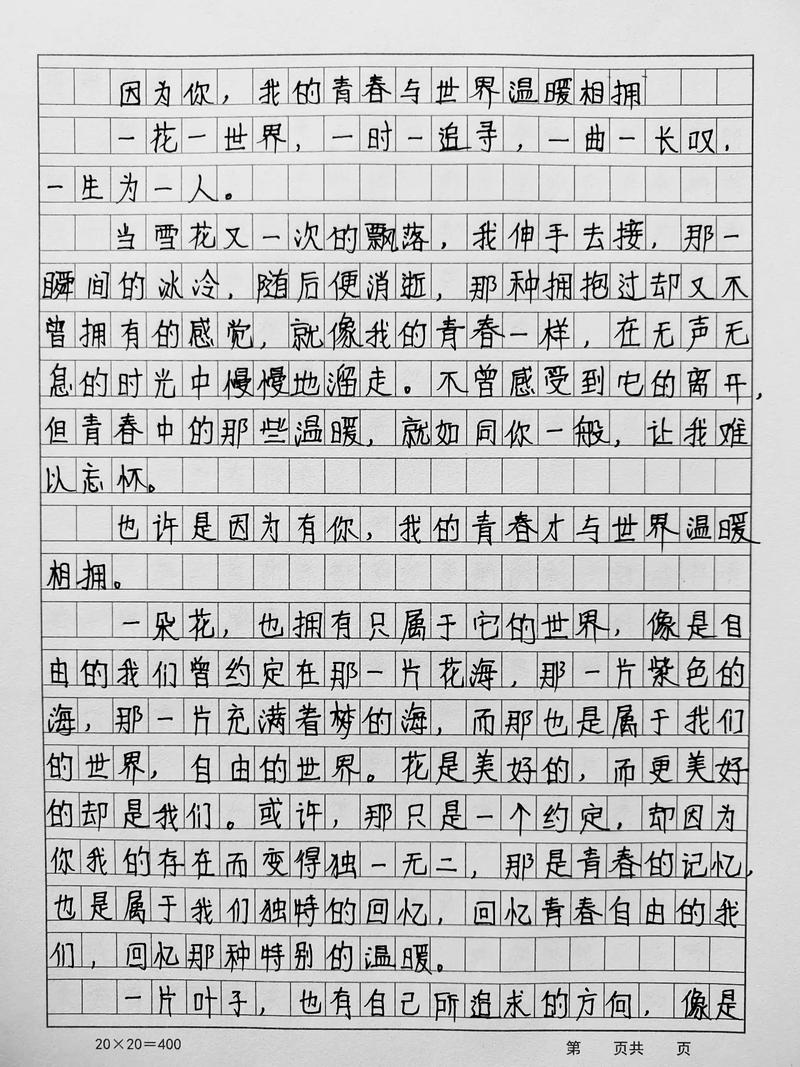 因为你，我的青春与世界温暖相拥
一花一世界，一时一追寻，一曲一长叹，
一生为一人。
当雪花又一次的飘落，我伸手去接，那一
瞬间的冰冷，随后便消逝，那种拥抱过却又不
曾拥有的感觉，就像我的青春一样，在无声无
息的时光中慢慢地溜走。不曾感受到它的离开，
但青春中的那些温暖，就如同你一般，让我难
以忘怀。
也许是因为有你，我的青春才与世界温暖
相拥。
一朵花，也拥有只属于它的世界，像是自
由的我们曾约定在那一片花海，那一片紫色的
海，那一片充满着梦的海，而那也是属于我们
的世界，自由的世界。花是美好的，而更美好
的却是我们。或许，那只是一个约定，却因为
你我的存在而变得独一无二，那是青春的记忆，
也是属于我们独特的回忆，回忆青春自由的我
们，回忆那种特别的温暖。
一片叶子，也有自己所追求的方向，像是
20×20=400
第 页共 页